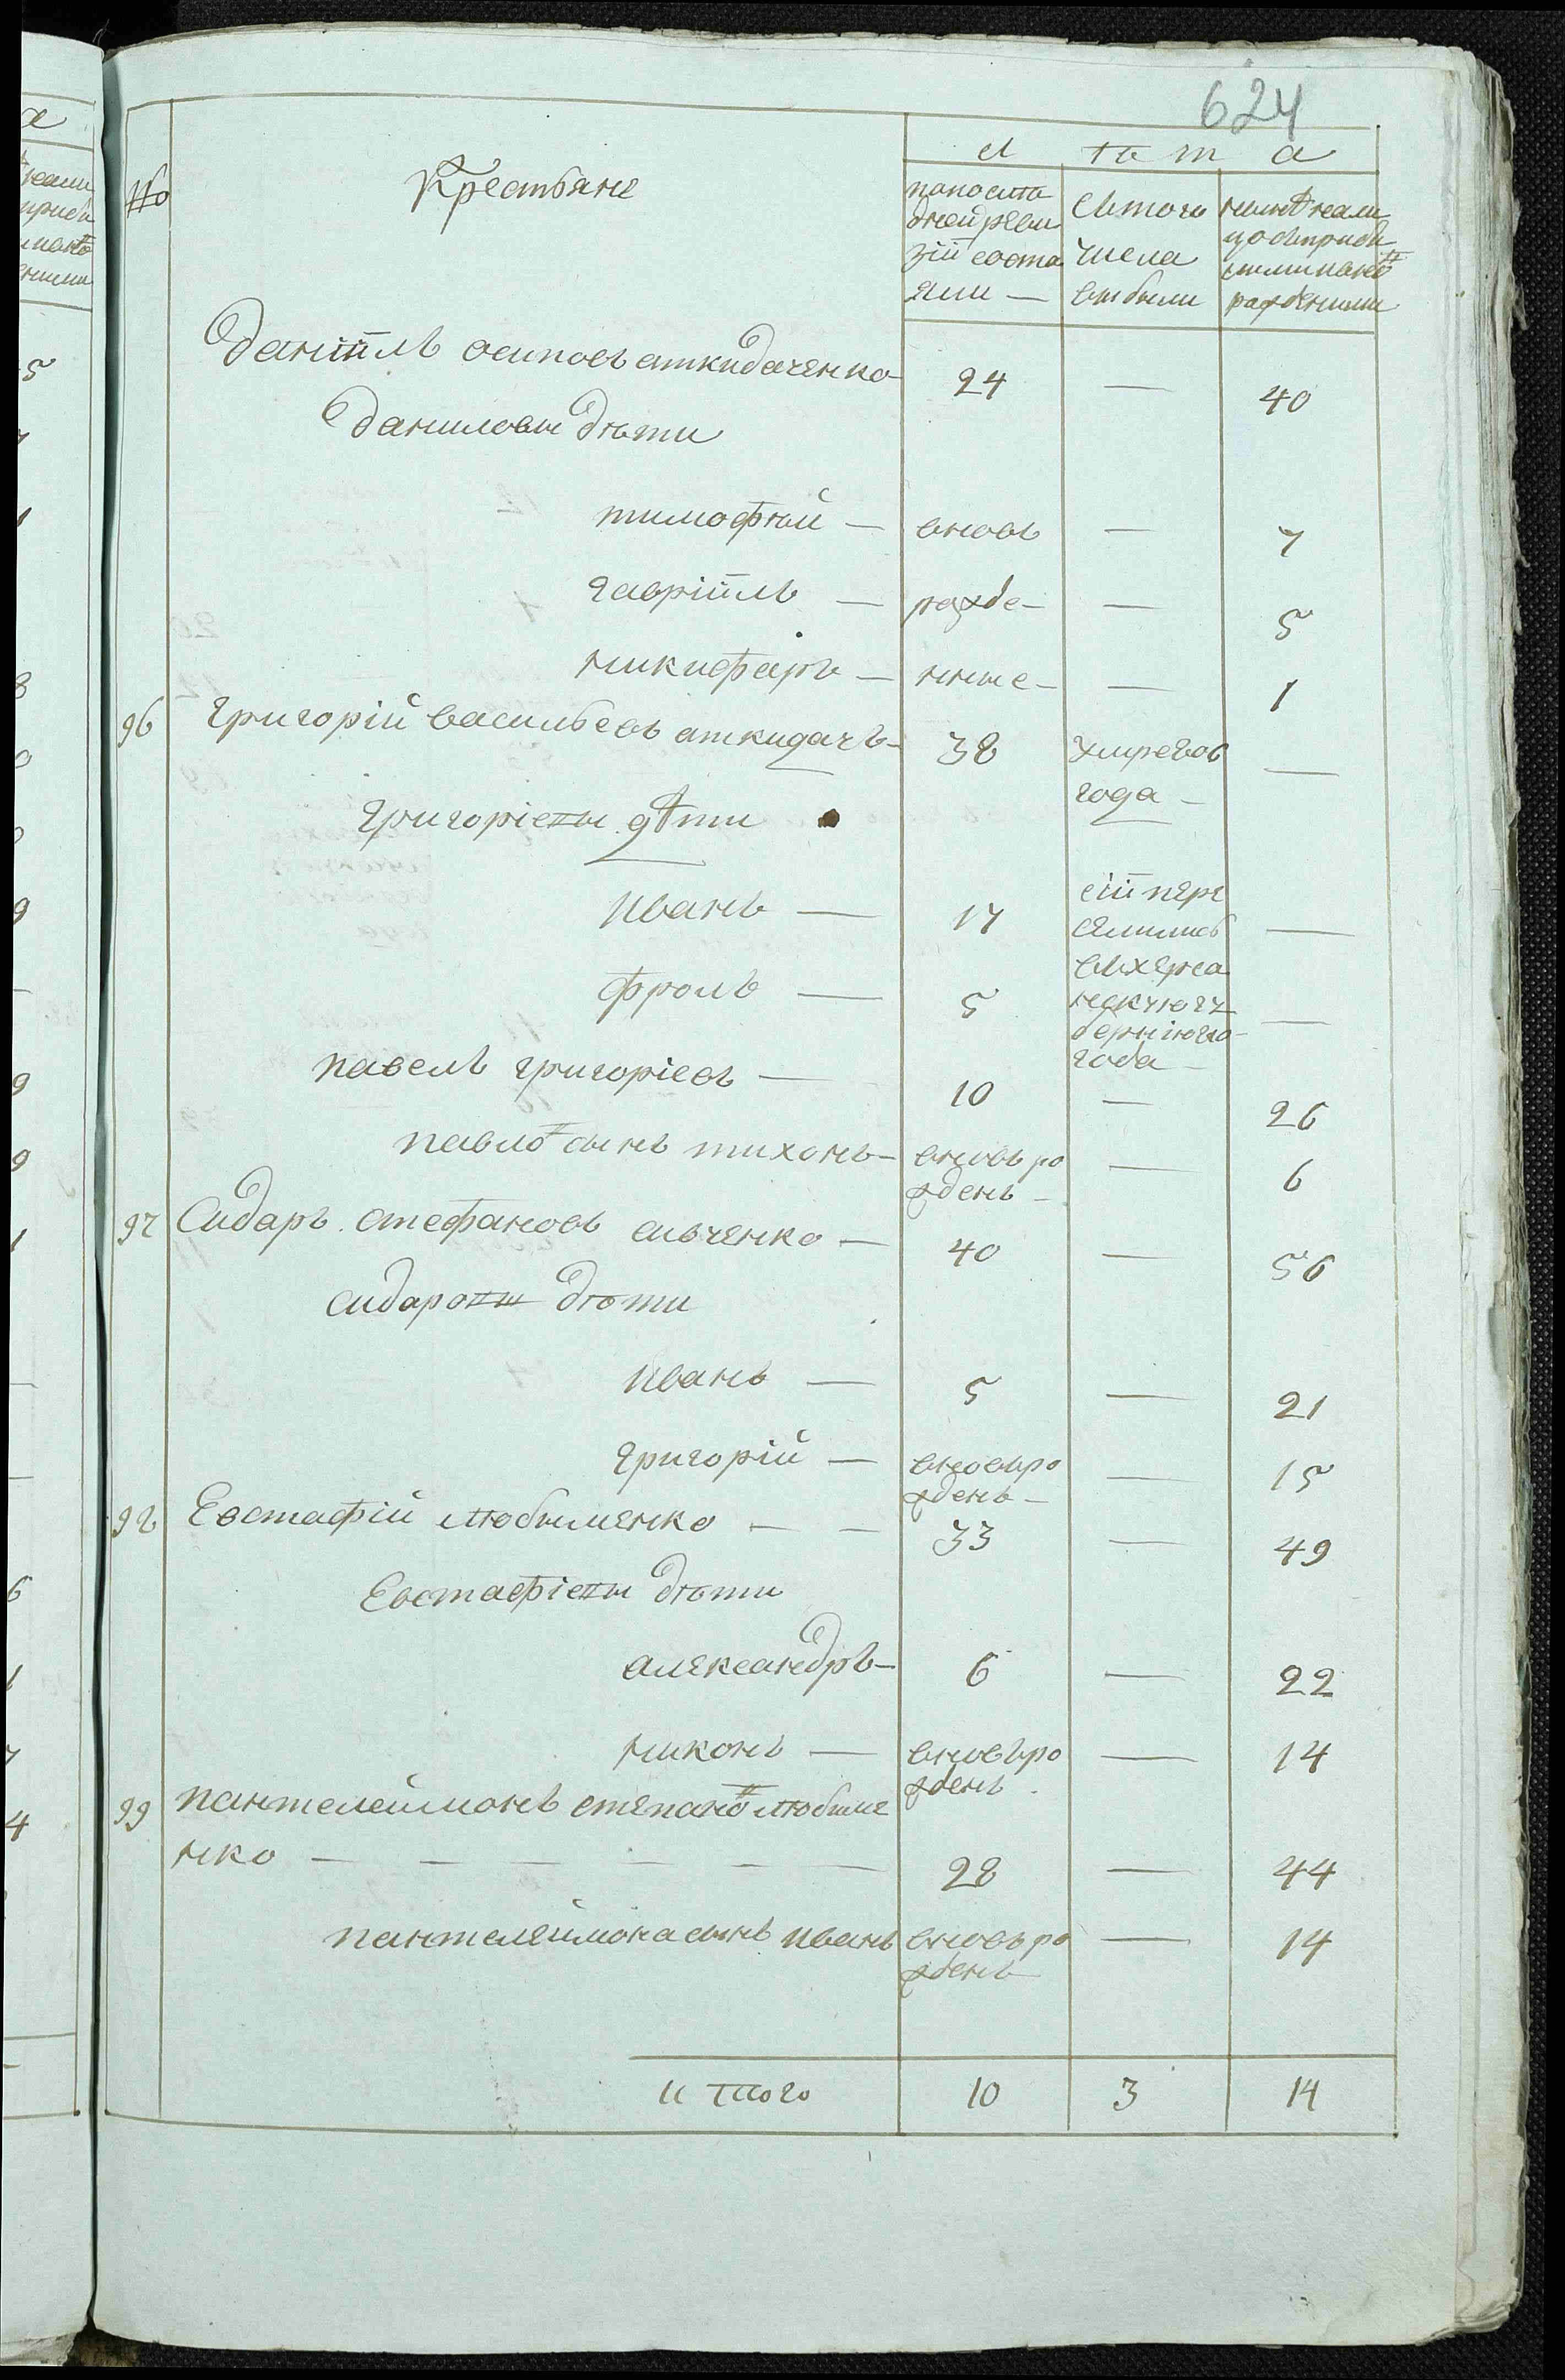 624
№ Крестьяне лѣта
по последней ревизіи состояли — изъ того числа выбыли ныне на лицо съ прибылыми и новорожденными
Даніилъ осиповъ аткидаченко — 24 — 40
Даниловы дѣти
тимофѣй — вновь — 7
гавріилъ — рожде — — 5
никифаръ — нные — — 1
96 григорій васильевъ аткидачъ — 38 умре 806 года —
григоріевы дѣти
иванъ — 17 сіи пере сялились —
фролъ — 5 въ херсонскую губернію года —
павелъ григоріевъ — 10 — 26
павловъ сынъ тихонъ — вновь рожденъ — 6
97 Сидаръ стефановъ сивченко — 40 — 56
сидаровы дѣти
иванъ — 5 — 21
григорій — вновь рожденъ — 15
98 Евстафій любименко — — 33 — 49
Евстафіевы дѣти
александръ — 6 — 22
никонъ — вновь рожденъ — 14
99 пантелеймонъ степановъ любиме
нко — — — — — — 28 — 44
пантелеймона сынъ иванъ вновь рожденъ — 14
итого 10 3 14